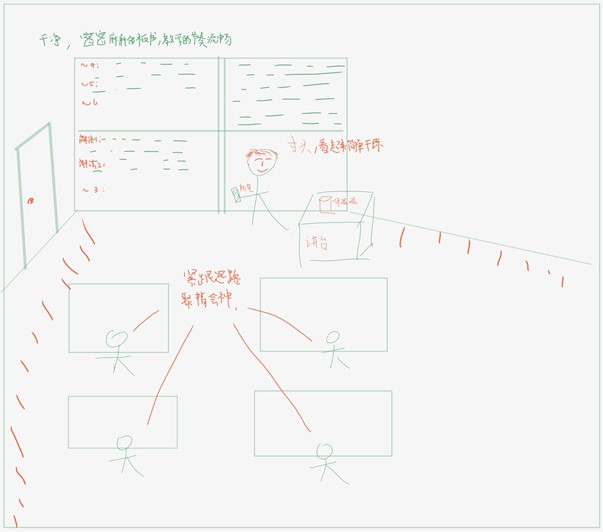 干净，密密麻麻的板书，教学的节奏流畅
~4:
~5:
~6
解法1:
解法2:
~3:
寸头，看起来简单干练
讲台
紧跟思路
聚精会神，